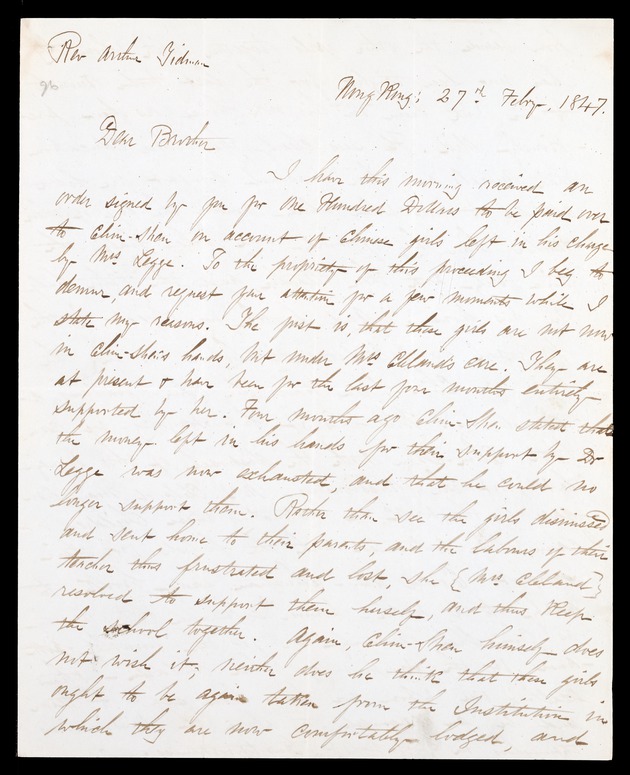 Rev Arthur Tidman
96
Hong Kong; 27th Feby, 1847.
Dear Brother
I have this morning received an
order signed by you for One Hundred Dollars to be paid over
to Chin-Shan on account of Chinese girls left in his charge
by Mrs Legge. To the propriety of this proceeding I beg to
demur, and request your attention for a few moments while I
state my reasons. The first is, that these girls are not now
in Chin-Shan's hands, but under Mrs Cleland's care. They are
at present & have been for the last four months entirely
supported by her. Four months ago Chin-Shan stated that
the money left in his hands for their support by Dr
Legge was now exhausted, and that he could no
longer support them. Rather than see the girls dismissed
and sent home to their parents, and the labours of their
teacher thus frustrated and lost, she {Mrs. Cleland}
resolved to support them herself, and thus keep
the school together. Again, Chin-Shan himself does
not wish it; neither does he think that these girls
ought to be again taken from the Institution in
which they are now comfortably lodged, and